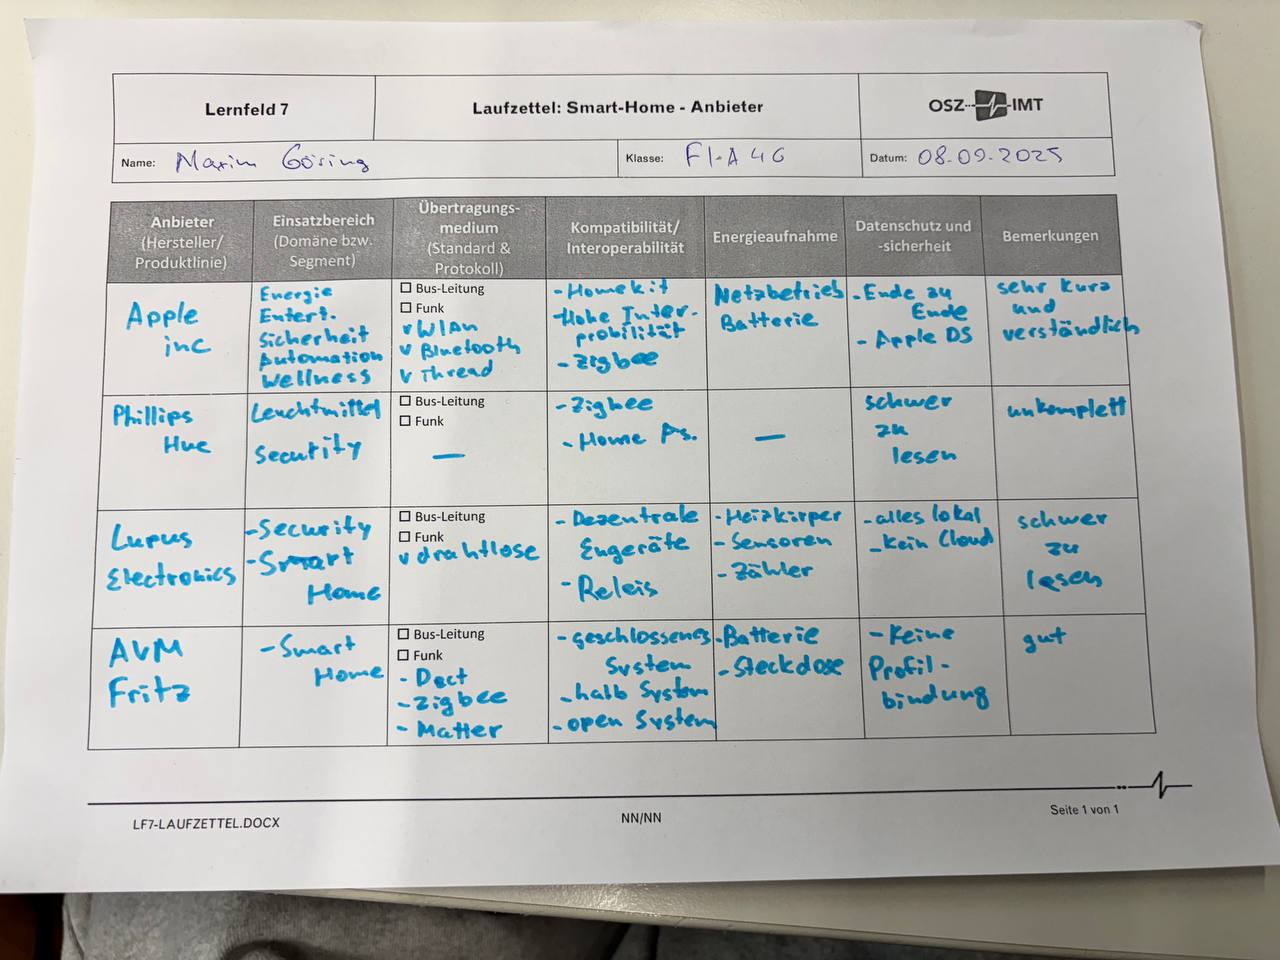 Lernfeld 7
Laufzettel: Smart-Home - Anbieter
OSZ IMT
Name: Maxim Göring
Klasse: FI-A 46
Datum: 08.09.2025
Anbieter
(Hersteller/
Produktlinie)
Einsatzbereich
(Domäne bzw.
Segment)
Übertragungs-
medium
(Standard &
Protokoll)
Kompatibilität/
Interoperabilität
Energieaufnahme
Datenschutz und
-sicherheit
Bemerkungen
Apple
inc
Energie
Entert.
Sicherheit
Automation
Wellness
☐ Bus-Leitung
☐ Funk
v Wlan
v Bluetooth
v Thread
- Homekit
Hohe Inter-
probilität
- Zigbee
Netzbetrieb
Batterie
- Ende zu
Ende
- Apple DS
sehr kurz
und
verständlich
Phillips
Hue
Leuchtmittel
Security
☐ Bus-Leitung
☐ Funk
—
- Zigbee
- Home As.
—
schwer
zu
lesen
unkomplett
Lupus
Electronics
- Security
- Smart
Home
☐ Bus-Leitung
☐ Funk
v drahtlose
- Dezentrale
Engeräte
- Releis
- Heizkörper
- Sensoren
- Zähler
- alles lokal
- Kein Cloud
schwer
zu
lesen
AVM
Fritz
- Smart
Home
☐ Bus-Leitung
☐ Funk
- Dect
- Zigbee
- Matter
- geschlossenes
System
- halb System
- open System
- Batterie
- Steckdose
- Keine
Profil-
bindung
gut
LF7-LAUFZETTEL.DOCX
NN/NN
Seite 1 von 1